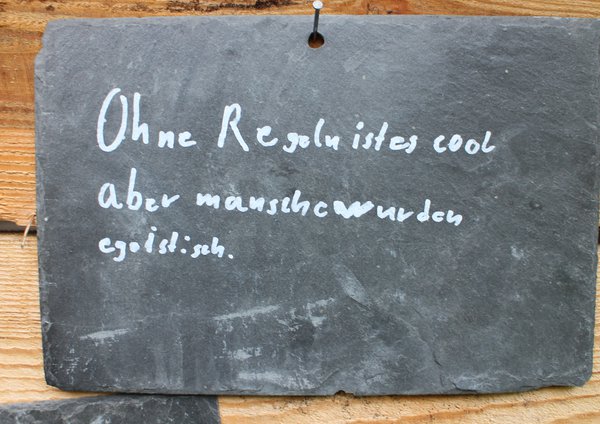 Ohne Regeln ist es cool
aber mansche wurden
egoistisch.